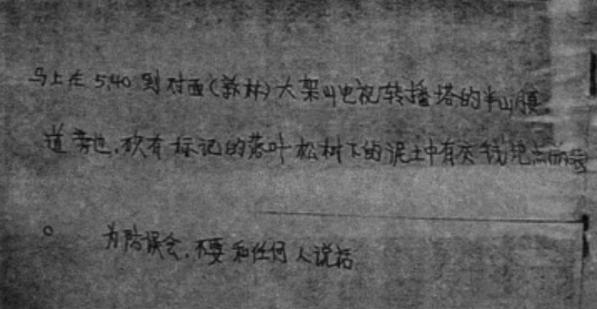 马上在5.40到对面(森林)大架山电视转播塔的半山腰
道旁边,砍有标记的落叶松树下的泥土中有
。 为防误会,不要和任何人说话